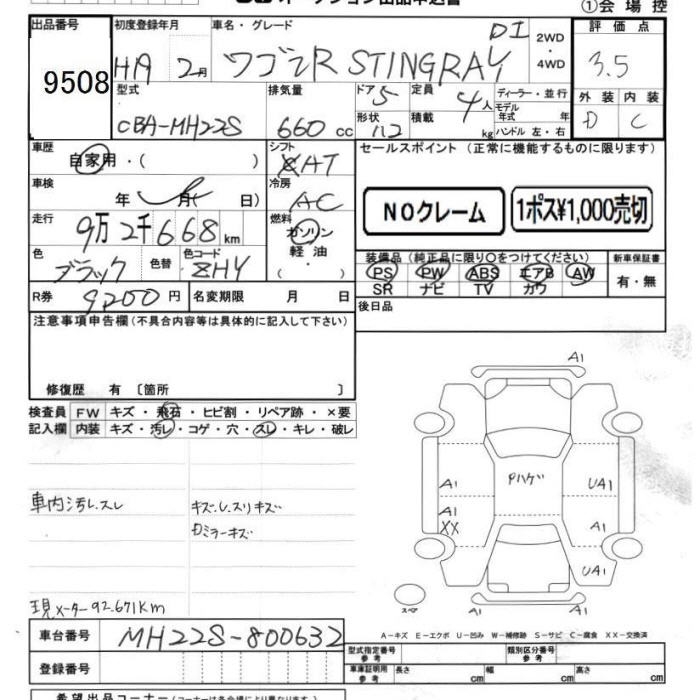 オークション出品申込書
①会場控
出品番号
9508
初度登録年月
H19 2月
車名・グレード
ワゴンR STINGRAY
DI
2WD
・
4WD
評価点
3.5
型式
CBA-MH22S
排気量
660 cc
ドア 5
形状 112
定員 4人
積載 kg
ディーラー・並行
モデル年式 年
ハンドル 左・右
外装 内装
D C
車歴
自家用・( )
シフト
AT
車検
年 月( 日)
冷房
AC
走行
9万2千668km
燃料
ガソリン
軽油
・
( )
色
ブラック
色替
色コード
ZHY
R券
9200円
名変期限 月 日
セールスポイント (正常に機能するものに限ります)
NOクレーム
1ポス¥1,000売切
装備品(純正品に限り○をつけてください)
PS PW ABS エアB AW
SR ナビ TV カワ
新車保証書
有・無
後日品
注意事項申告欄(不具合内容等は具体的に記入して下さい)
修復歴 有 〔箇所 〕
検査員 FW キズ・飛石・ヒビ割・リペア跡・×要
記入欄 内装 キズ・汚レ・コゲ・穴・スレ・キレ・破レ
車内汚レスレ
キズ・U.スリキズ
ミラーキズ
現メーター92.671Km
A1
A1
A1
XX
Pハゲ
UA1
A1
UA1
A1
スペア
A-キズ E-エクボ U-凹み W-補修跡 S-サビ C-腐食 XX-交換済
車台番号 MH22S-800632
登録番号
型式指定番号
参考
類別区分番号
参考
車庫証明用
参考
長さ cm 幅 cm 高さ cm
希望出品コーナー